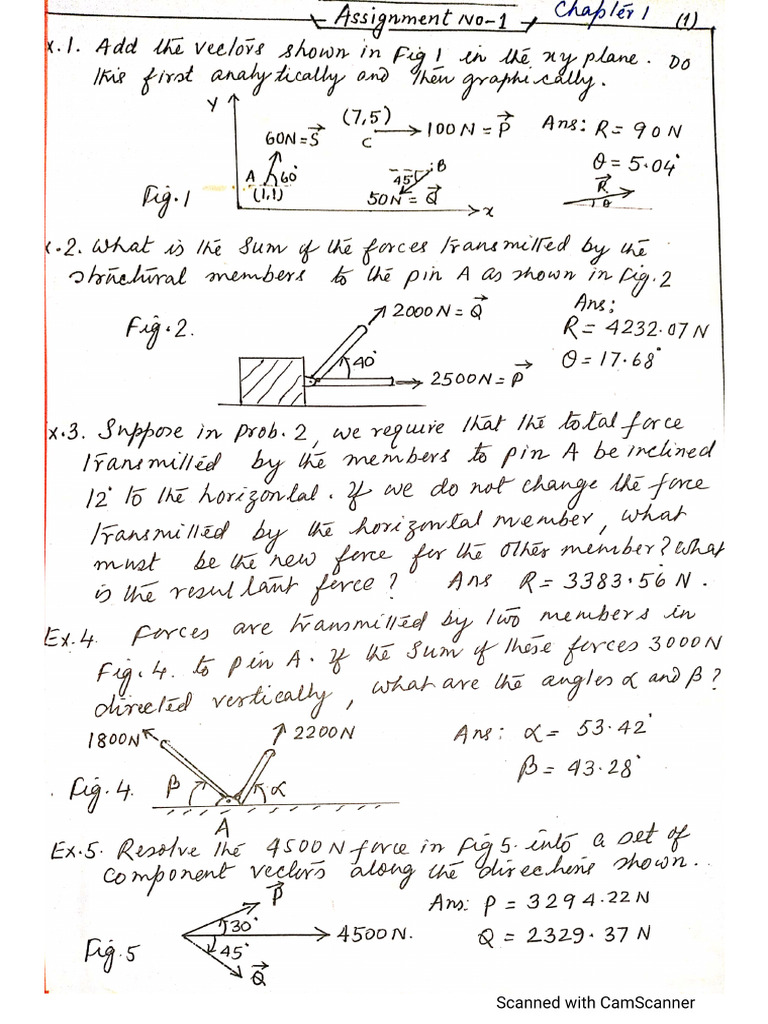 Assignment No-1 Chapter 1 (1)
x.1. Add the vectors shown in Fig 1 in the xy plane. Do
this first analytically and then graphically.
Y
(7,5)
60N = S
C
100N = P
Ans: R = 90N
θ = 5.04°
A 60°
(1,1)
45°
B
50N = Q
x
R
θ
Fig.1
x.2. What is the sum of the forces transmitted by the
structural members to the pin A as shown in Fig.2
Fig.2.
2000N = Q
40°
2500N = P
Ans:
R = 4232.07N
θ = 17.68°
x.3. Suppose in prob. 2, we require that the total force
transmitted by the members to pin A be inclined
12° to the horizontal. If we do not change the force
transmitted by the horizontal member, what
must be the new force for the other member? What
is the resultant force? Ans R = 3383.56 N.
Ex.4. Forces are transmitted by two members in
Fig.4. to pin A. If the sum of these forces 3000N
directed vertically, what are the angles α and β?
1800N
2200N
Ans: α = 53.42°
β = 43.28°
Fig.4.
β
α
A
Ex.5. Resolve the 4500N force in Fig 5. into a set of
component vectors along the directions shown..
P
30°
4500N.
45°
Q
Fig.5
Ans: P = 3294.22N
Q = 2329.37N
Scanned with CamScanner